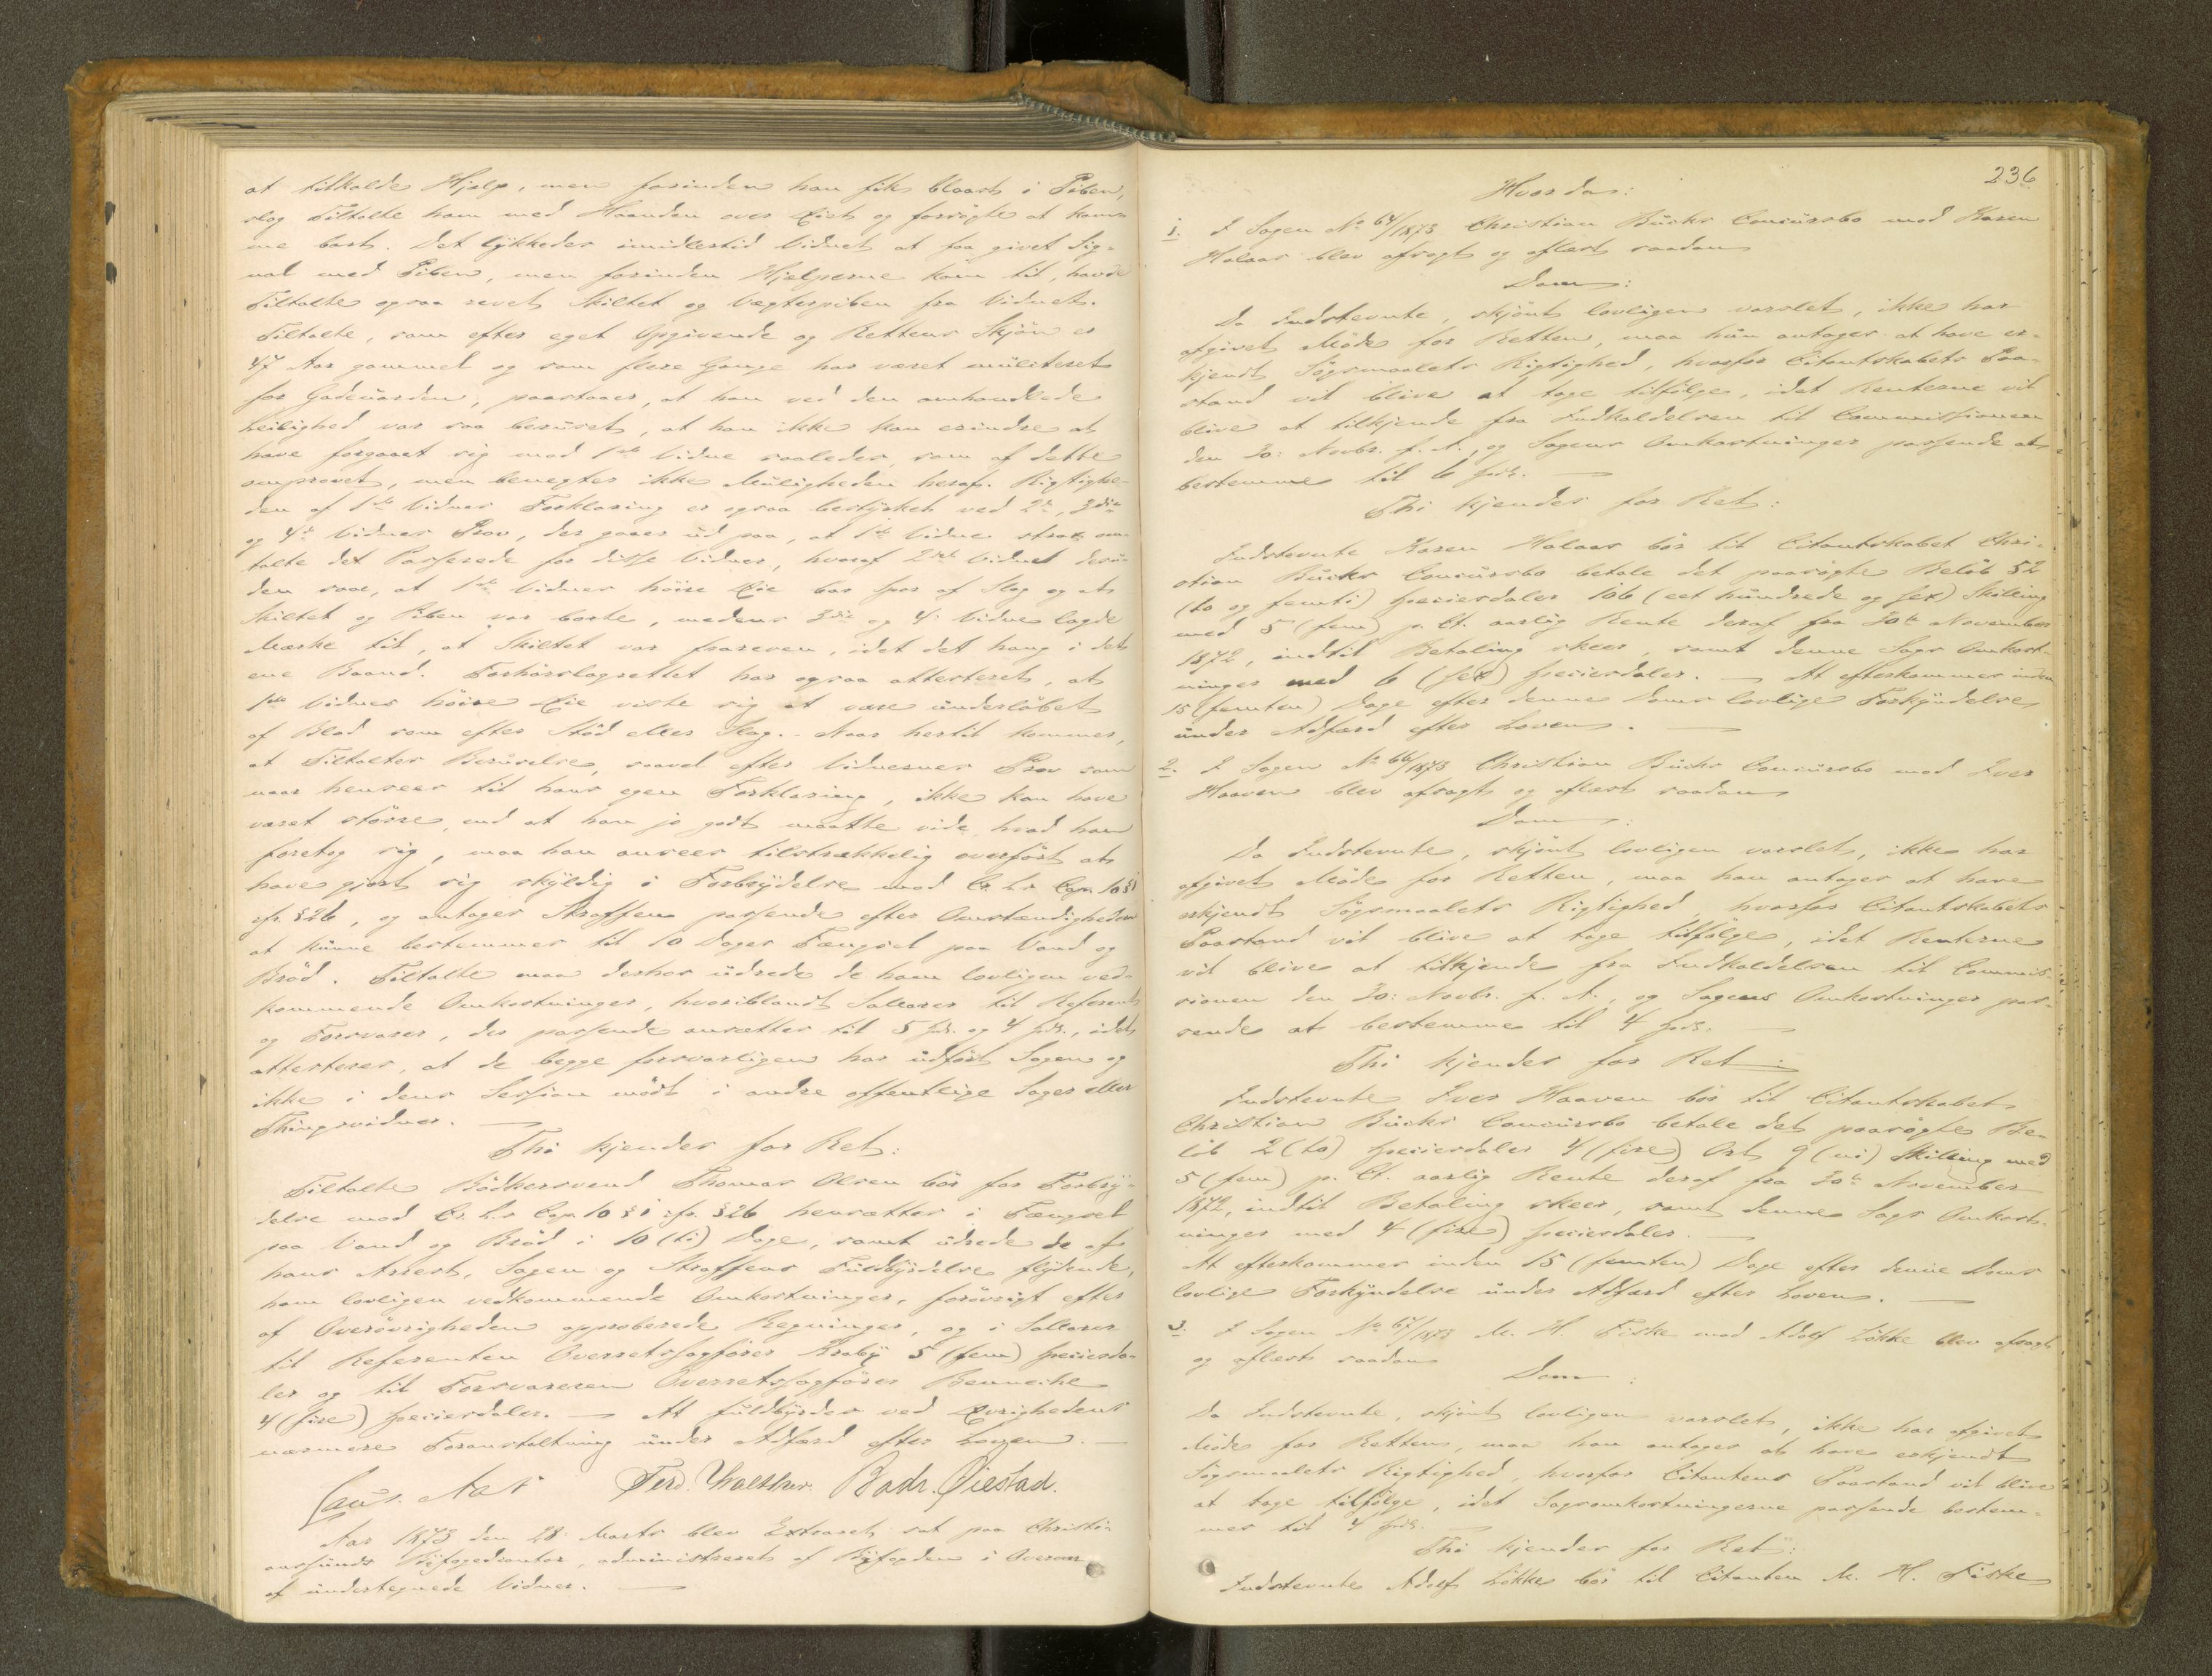 at tilkalde Hjælp, men forinden han fik blaast i Piben,
slog Tiltalte ham med Haanden over Øiet og forsøgte at kom-
me bort. Det lykkedes imidlertid Vidnet at faa givet Sig-
nal med Piben, men forinden Hjælperne kom til, havde
Tiltalte ogsaa revet Skiltet og Vægterpiben fra Vidnet.
Tiltalte, som efter eget Opgivende og Rettens Skjøn er
47 Aar gammel og som flere Gange har været mulkteret
for Gadeuorden, paastaaer, at han ved den omhandlede
Leilighed var saa beruset, at han ikke kan erindre at
have forgaaet sig mod 1ste Vidne saaledes, som af dette
omprovet, men benegter ikke Muligheden heraf. Rigtighe-
den af 1ste Vidnes Forklaring er ogsaa bestyrket ved 2det, 3die
og 4de Vidnes Prov, der gaaer ud paa, at 1ste Vidne strax om-
talte det Passerede for disse Vidner, hvoraf 2det Vidnet desu-
den saae, at 1ste Vidnes høire Øie bar Spor af Slag og at
Skiltet og Piben var borte, medens 3die og 4de Vidne lagde
Mærke til, at Skiltet var frareven, idet det hang i det
ene Baand. Forhørslagrettet har ogsaa attesteret, at
1ste Vidnes høire Øie viste sig at være underløbet
af Blod som efter Stød eller Slag. - Naar hertil kommer,
at Tiltaltes Beruselse, saavel efter Vidnernes Prov som
naar henseees til hans egen Forklaring, ikke kan have
været større, end at han jo godt maatte vide, hvad han
foretog sig, maa han ansees tilstrækkelig overført at
have gjort sig skyldig i Forbrydelse mod Cr. L.s Cap. 10 § 1
cfr. § 26, og antages Straffen passende efter Omstændighederne
at kunne bestemmes til 10 Dages Fængsel paa Vand og
Brød. Tiltalte maa derhos udrede de ham lovligen ved-
kommende Omkostninger, hvoriblandt Sallarer til Referent
og Forsvarer, der passende ansættes til 5 Spd. og 4 Spd., idet
attesteres, at de begge forsvarligen har udført Sagen og
ikke i dens Session mødt i andre offentlige Sager eller
Thingsvidner.
Thi kjendes for Ret:
Tiltalte Bødkersvend Thomas Olsen bør for Forbry-
delse mod Cr. L.s Cap. 10 § 1 cfr. § 26 hensættes i Fængsel
paa Vand og Brød i 10 (ti) Dage, samt udrede de af
hans Arrest, Sagen og Straffens Fuldbyrdelse flydende,
ham lovligen vedkommende Omkostninger, forøvrigt efter
af Overøvrigheden approberede Regninger, og i Sallarer
til Referenten Overretssagfører Kraby 5 (fem) Speciesda-
ler og til Forsvareren Overretssagfører Benneche
4 (fire) Speciesdaler. At fuldbyrdes ved Øvrighedens
nærmere Foranstaltning under Adfærd efter Loven.
Ferd. Walther. Øiestad.
Aar 1873 den 28: Marts blev Extraret sat paa Christi-
ansunds Byfogedcontor, administreret af Byfogden i Overvær
af undertegnede Vidner.
236
Hvorda:
1. I Sagen No 64/1873 Christian Bucks Concursbo mod Karen
Halaas blev afsagt og oplæst saadan
Dom:
Da Indstevnte, skjønt lovligen varslet, ikke har
afgivet Møde for Retten, maa hun antages at have er-
kjendt Søgsmaalets Rigtighed, hvorfor Citantskabets Paa-
stand vil blive at tage tilfølge, idet Renterne vil
blive at tilkjende fra Indkaldelsen til Commissionen
den 30: Novbr. f. A., og Sagens Omkostninger passende at
bestemme til 6 Spd.
Thi kjendes for Ret:
Indstevnte Karen Halaas bør til Citantskabet Chri-
stian Bucks Concursbo betale det paasøgte Beløb 52
(to og femti) Speciesdaler 106 (eet hundrede og sex) Skilling
med 5 (fem) p. Ct. aarlig Rente deraf fra 30te November
1872, indtil Betaling skeer, samt denne Sags Omkost-
ninger med 6 (sex) Speciesdaler. At efterkommes inden
15 (femten) Dage efter denne Doms lovlige Forkyndelse
under Adfærd efter Loven.
2. I Sagen No 66/1873 Christian Bucks Concursbo mod Iver
Haaven blev afsagt og oplæst saadan
Dom:
Da Indstevnte, skjønt lovligen varslet, ikke har
afgivet Møde for Retten, maa han antages at have
erkjendt Søgsmaalets Rigtighed, hvorfor Citantskabets
Paastand vil blive at tage tilfølge, idet Renterne
vil blive at tilkjende fra Indkaldelsen til Commis-
sionen den 30: Novbr. f. A., og Sagens Omkostninger pas-
sende at bestemme til 4 Spd.
Thi kjendes for Ret:
Indstevnte Iver Haaven bør til Citantskabet
Christian Bucks Concursbo betale det paasøgte Be-
løb 2 (to) Speciesdaler 4 (fire) Ort 9 (ni) Skilling med
5 (fem) p. Ct. aarlig Rente deraf fra 30te November
1872, indtil Betaling skeer, samt denne Sags Omkost-
ninger med 4 (fire) Speciesdaler.
At efterkommes inden 15 (femten) Dage efter denne Doms
lovlige Forkyndelse under Adfærd efter Loven.
3. I Sagen No 67/1873 M. H. Fiske mod Adolf Løkke blev afsagt
og oplæst saadan
Dom:
Da Indstevnte, skjønt lovligen varslet, ikke har afgivet
Møde for Retten, maa han antages at have erkjendt
Søgsmaalets Rigtighed, hvorfor Citantens Paastand vil blive
at tage tilfølge, idet Sagsomkostningerne passende bestem-
mes til 4 Spd.
Thi kjendes for Ret:
Indstevnte Adolf Løkke bør til Citanten M. H. Fiske